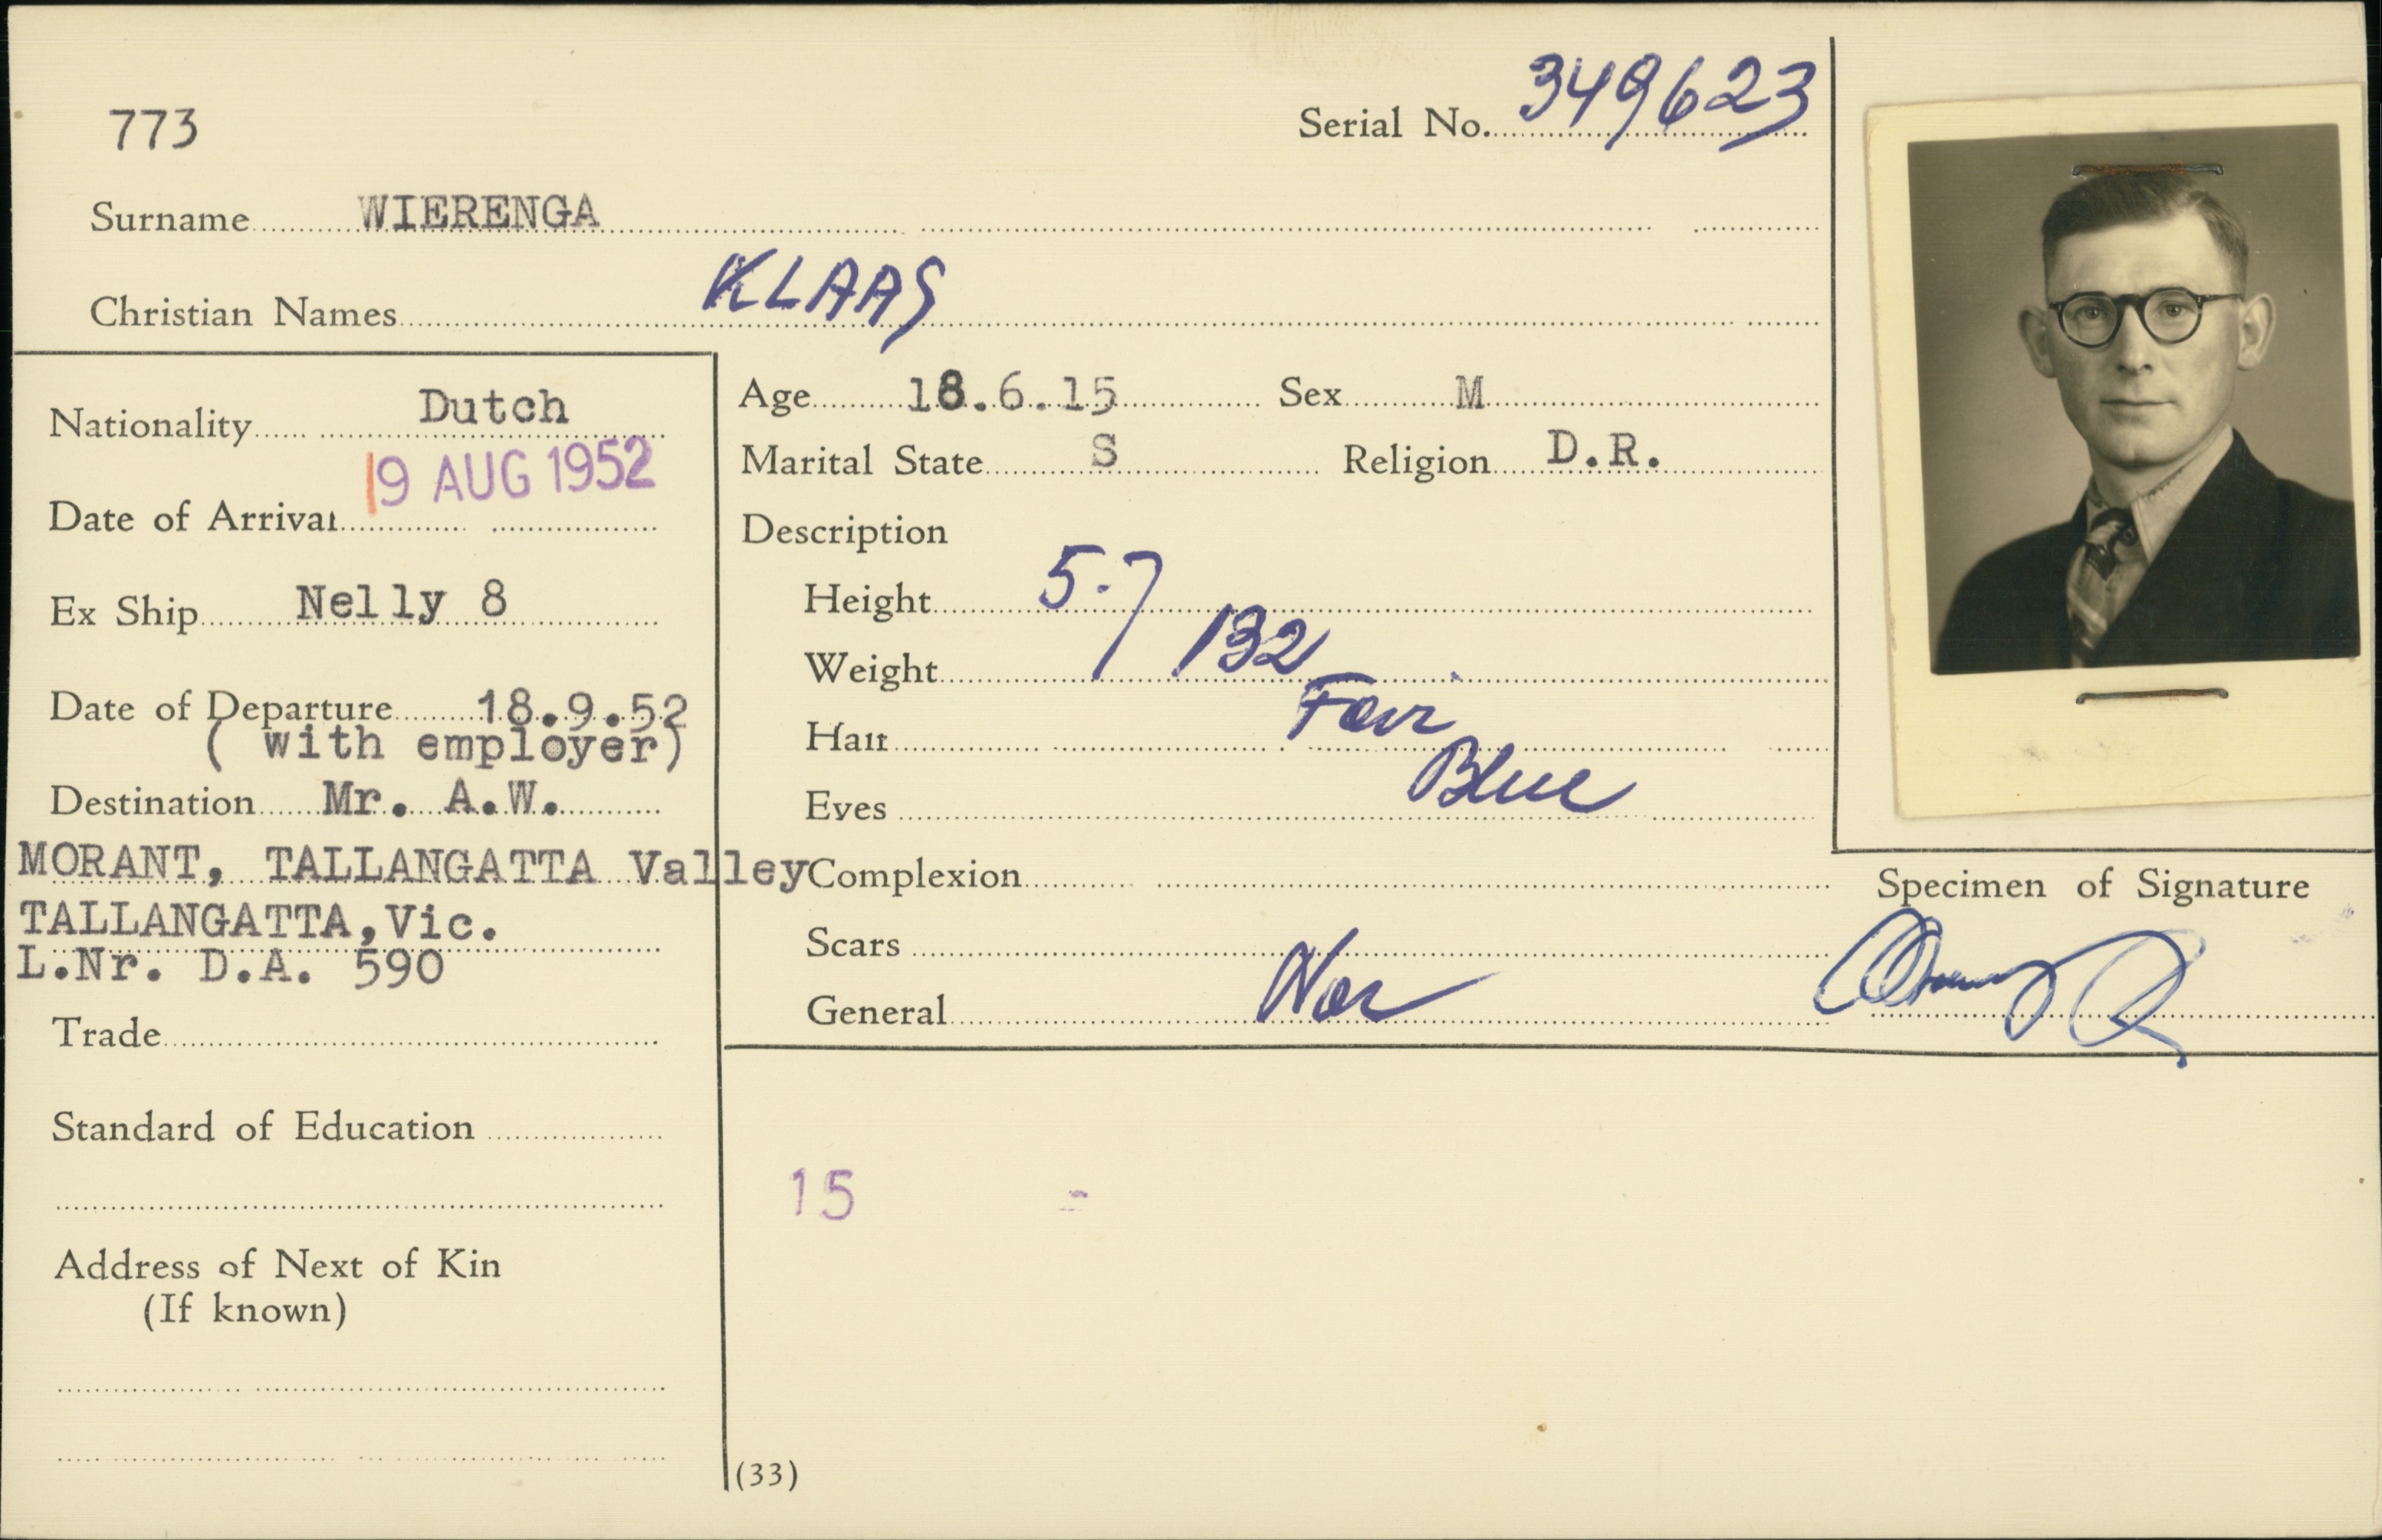 773
Serial No. 349623
Surname WIERENGA
Christian Names KLAAS
Nationality Dutch
Date of Arrival 19 AUG 1952
Ex Ship Nelly 8
Date of Departure 18.9.52
( with employer)
Destination Mr. A.W.
MORANT, TALLANGATTA Valley
TALLANGATTA,Vic.
L.Nr. D.A. 590
Trade
Standard of Education
Address of Next of Kin
(If known)
Age 18.6.15 Sex M
Marital State S Religion D.R.
Description
Height 5.7
Weight 132
Hair Fair
Eyes Blue
Complexion
Scars
General
Specimen of Signature
15
(33)